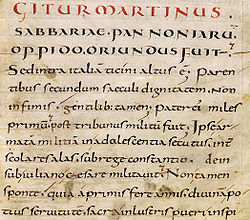 GITUR MARTINUS.
SABBARIAE·PANNONIARŪ·
OPPIDO·ORIUNDUS FUIT·
Sed intra italiā ticini altus ē; Paren
tibus secundum saeculi dignitatem·non
infimis·gentilib; tamen. Pater ei miles
primū·post tribunus militū fuit. Ipse ar
matā militiā in adolescentia secutus, int
scolares alas, sub rege constantio· dein
sub iuliano cęsare militavit. Non tamen
sponte, quia a primis fere annis, divinā po
tius servitutē, sacra inlustris puer inspi